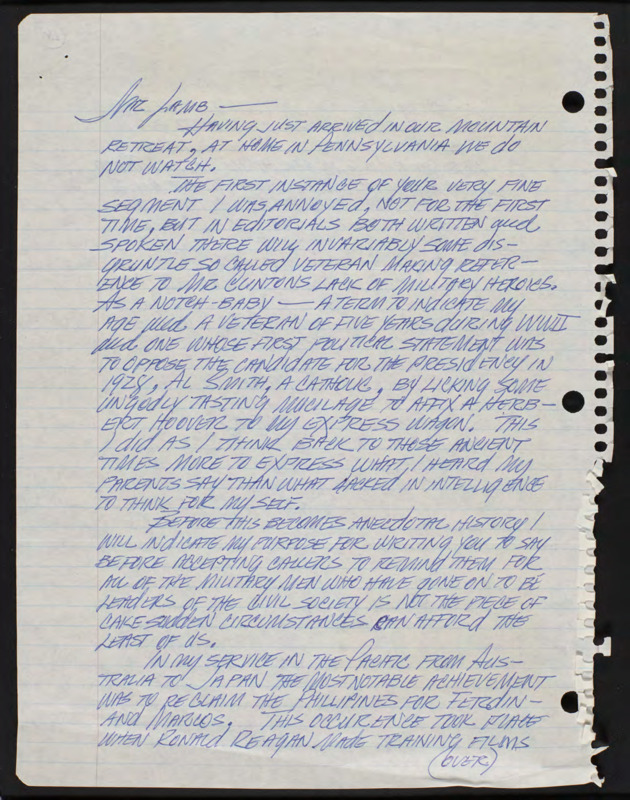 Mr Lamb —
HAVING JUST ARRIVED IN OUR MOUNTAIN
RETREAT, AT HOME IN PENNSYLVANIA WE DO
NOT WATCH.
THE FIRST INSTANCE OF YOUR VERY FINE
SEGMENT I WAS ANNOYED, NOT FOR THE FIRST
TIME, BUT IN EDITORIALS BOTH WRITTEN and
SPOKEN THERE WILL INVARIABLY SOME DIS-
GRUNTLE SO CALLED VETERAN MAKING REFER-
ENCE TO MR CLINTONS LACK OF MILITARY HEROICS.
AS A NOTCH-BABY — A TERM TO INDICATE MY
AGE and A VETERAN OF FIVE YEARS dURING WWII
and ONE WHOSE FIRST POLITICAL STATEMENT WAS
TO OPPOSE THE CANDIDATE FOR THE PRESIDENCY IN
1928, AL SMITH, A CATHOLIC, BY LICKING SOME
UNGODLY TASTING MUCILAGE TO AFFIX A HERB-
ERT HOOVER TO MY EXPRESS WAGON. THIS
I did AS I THINK BACK TO THOSE ANCIENT
TIMES MORE TO EXPRESS WHAT I HEARd MY
PARENTS SAY THAN WHAT LACKED IN INTELLIGENCE
TO THINK FOR MY SELF.
BEFORE THIS BECOMES ANECDOTAL HISTORY I
WILL INDICATE MY PURPOSE FOR WRITING YOU TO SAY
BEFORE ACCEPTING CALLERS TO REMIND THEM FOR
ALL OF THE MILITARY MEN WHO HAVE GONE ON TO BE
LEADERS OF THE CIVIL SOCIETY IS NOT THE PIECE OF
CAKE SUDDEN CIRCUMSTANCES CAN AFFORd THE
LEAST OF US.
IN MY SERVICE IN THE PACIFIC FROM AUS-
TRALIA TO JAPAN THE MOST NOTABLE ACHIEVEMENT
WAS TO RECLAIM THE PHILLIPINES FOR FERDIN-
AND MARCOS. THIS OCCURENCE TOOK PLACE
WHEN RONALD REAGAN MADE TRAINING FILMS
(OVER)